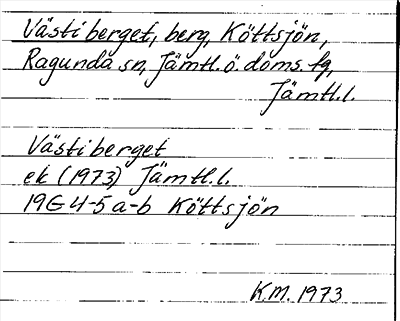 Västiberget, berg, Köttsjön,
Ragunda sn, Jämtl. ö. doms. fg,
Jämtl.l.
Västiberget
ek (1973) Jämtl.l.
19G 4-5 a-b Köttsjön
K.M. 1973